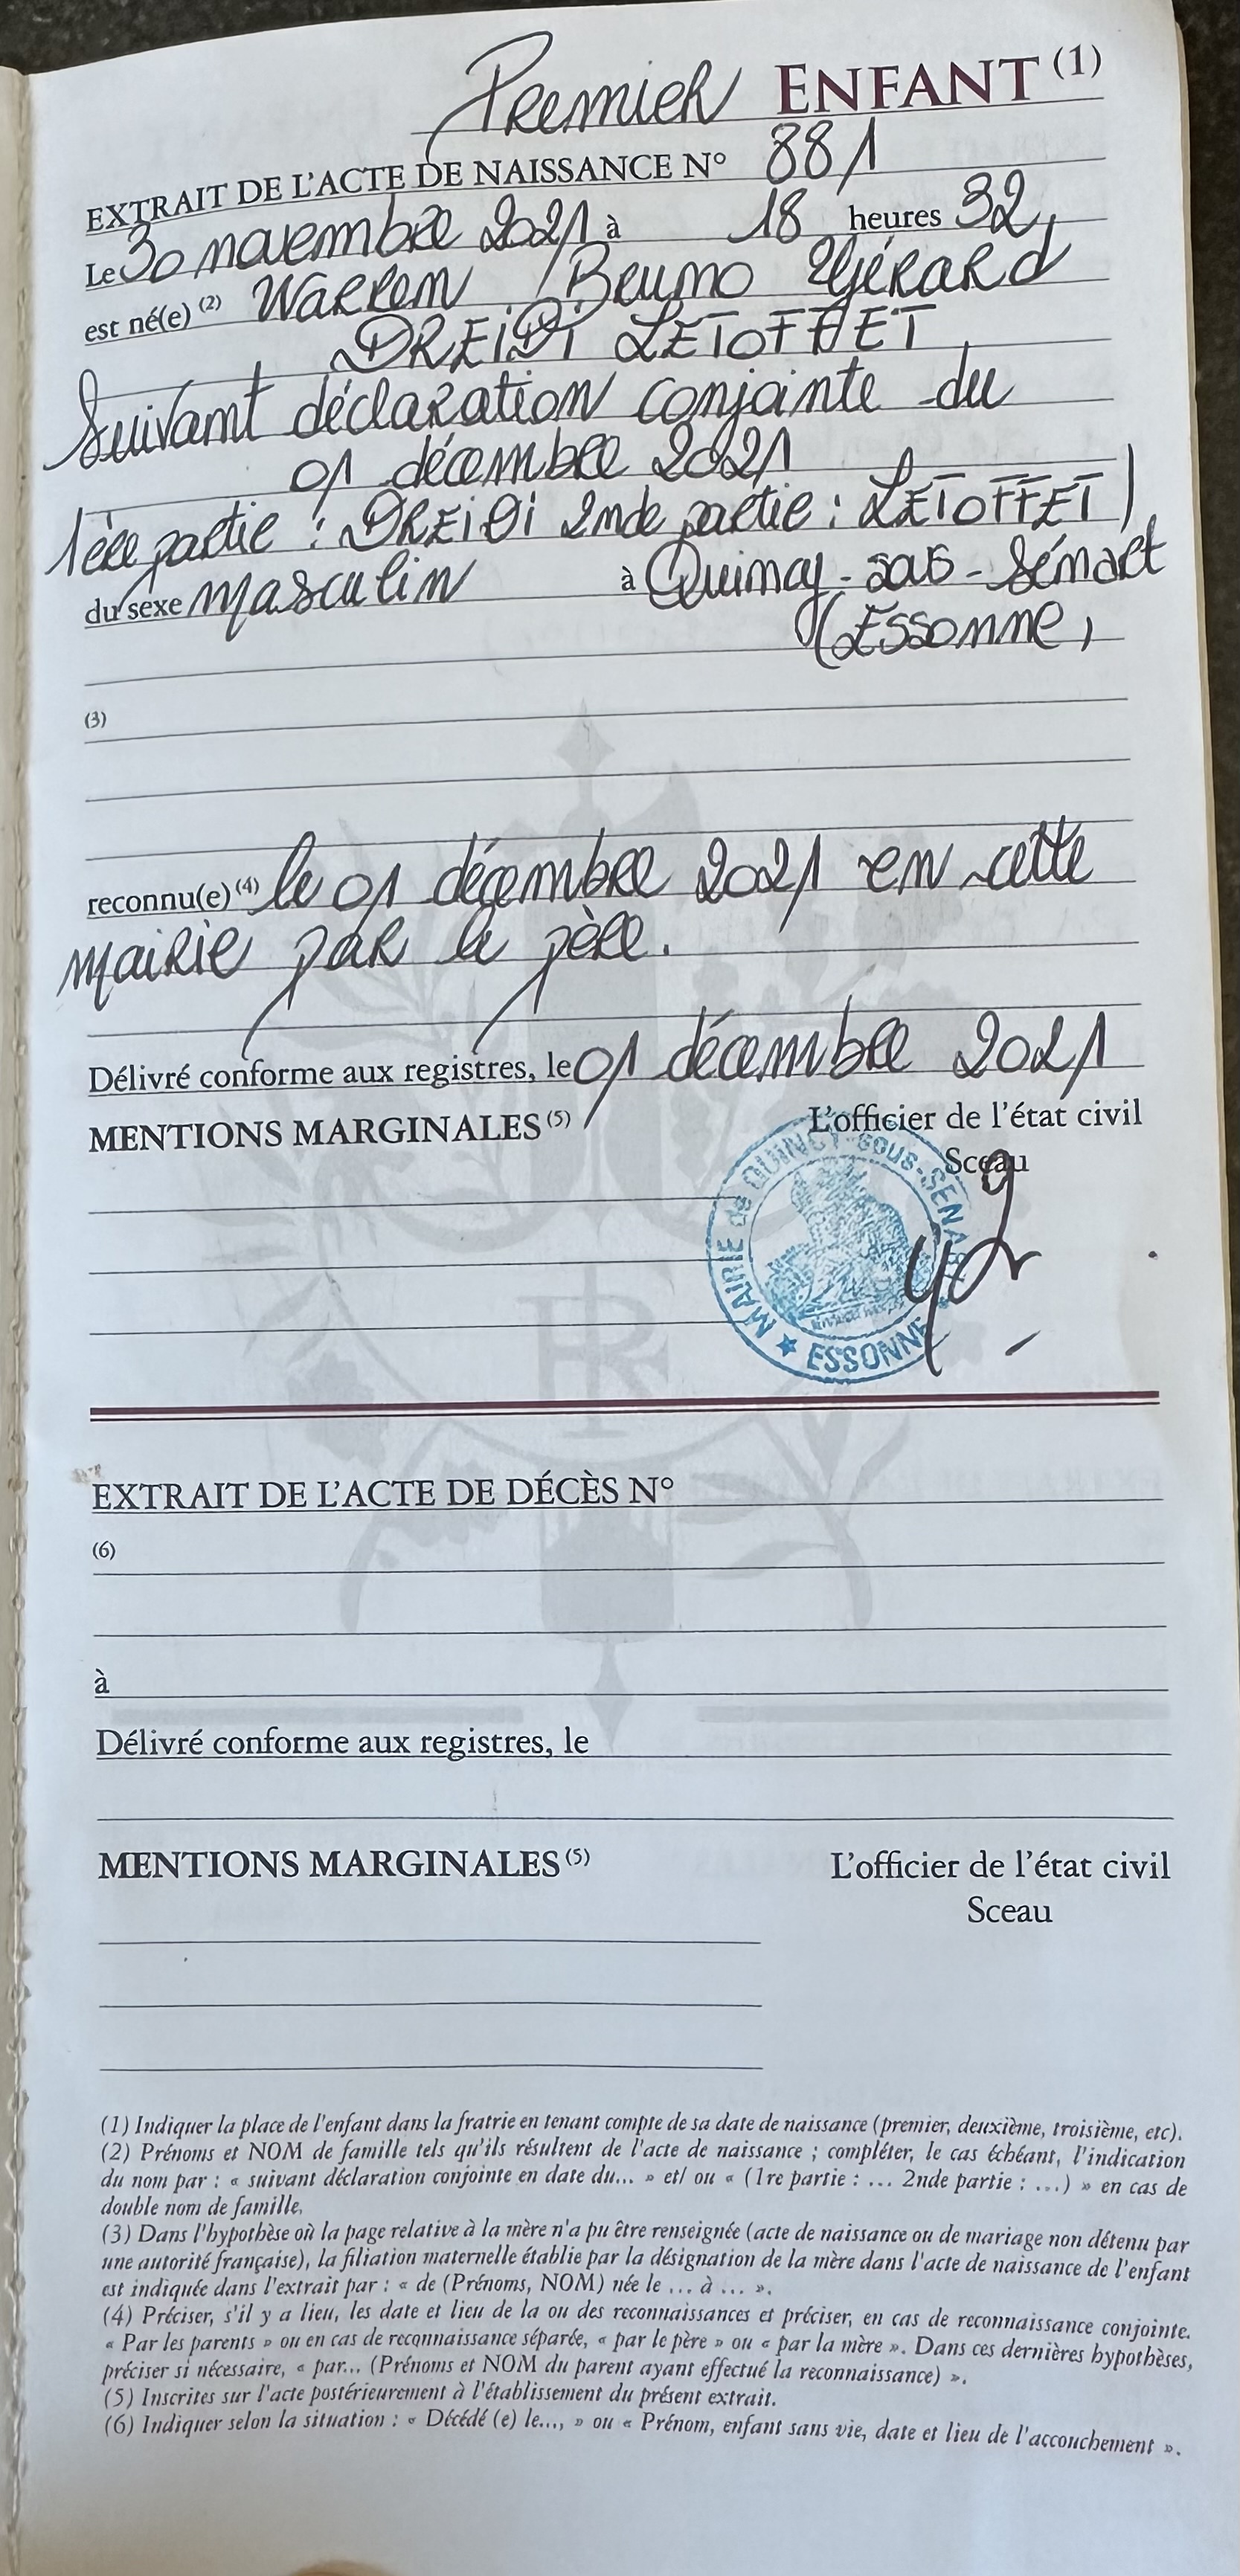 Premier ENFANT (1)
EXTRAIT DE L'ACTE DE NAISSANCE N° 881
Le 30 novembre 2021 à 18 heures 32,
est né(e) (2) Warren, Bruno Gérard
DREIDI LETOFFET
Suivant déclaration conjointe du
01 décembre 2021
1ère partie : DREIDI 2nde partie : LETOFFET)
du sexe masculin à Quincy-sous-Sénart
(Essonne,
(3)
reconnu(e) (4) le 01 décembre 2021 en cette
mairie par le père.
Délivré conforme aux registres, le 01 décembre 2021
MENTIONS MARGINALES (5) L'officier de l'état civil
Sceau
MAIRIE de QUINCY-sous-SENART
★ ESSONNE
EXTRAIT DE L'ACTE DE DÉCÈS N°
(6)
à
Délivré conforme aux registres, le
MENTIONS MARGINALES (5) L'officier de l'état civil
Sceau
(1) Indiquer la place de l'enfant dans la fratrie en tenant compte de sa date de naissance (premier, deuxième, troisième, etc).
(2) Prénoms et NOM de famille tels qu'ils résultent de l'acte de naissance ; compléter, le cas échéant, l'indication
du nom par : « suivant déclaration conjointe en date du... » et/ ou « (1re partie : ... 2nde partie : ...) » en cas de
double nom de famille.
(3) Dans l'hypothèse où la page relative à la mère n'a pu être renseignée (acte de naissance ou de mariage non détenu par
une autorité française), la filiation maternelle établie par la désignation de la mère dans l'acte de naissance de l'enfant
est indiquée dans l'extrait par : « de (Prénoms, NOM) née le ... à ... ».
(4) Préciser, s'il y a lieu, les date et lieu de la ou des reconnaissances et préciser, en cas de reconnaissance conjointe.
« Par les parents » ou en cas de reconnaissance séparée, « par le père » ou « par la mère ». Dans ces dernières hypothèses,
préciser si nécessaire, « par... (Prénoms et NOM du parent ayant effectué la reconnaissance) ».
(5) Inscrites sur l'acte postérieurement à l'établissement du présent extrait.
(6) Indiquer selon la situation : « Décédé (e) le..., » ou « Prénom, enfant sans vie, date et lieu de l'accouchement ».